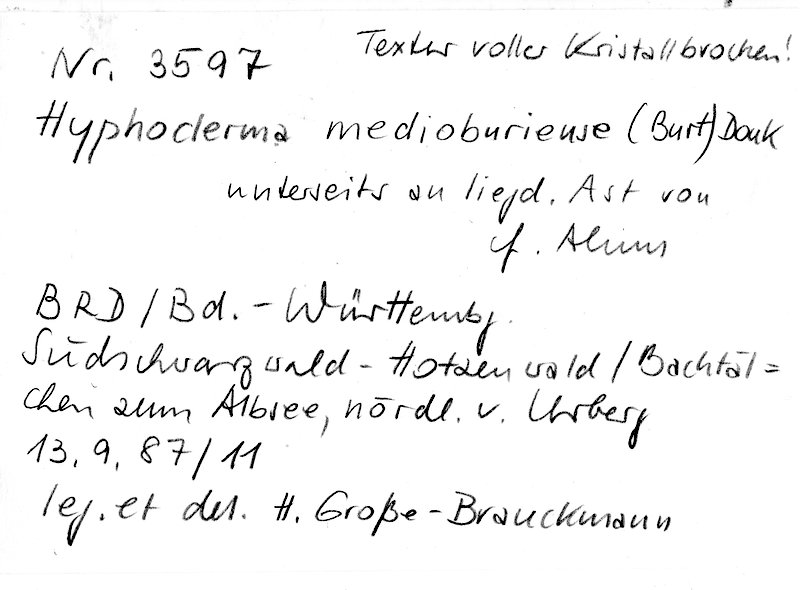 Nr. 3597 Textur voller Kristallbrocken!
Hyphoderma medioburiense (Burt) Donk
unterseits an liegd. Ast von
cf. Alnus
BRD / Bd. - Württembg.
Südschwarzwald - Hotzenwald / Bachtäl=
chen zum Albsee, nördl. v. Urberg
13. 9. 87 / 11
leg. et det. H. Große-Brauckmann